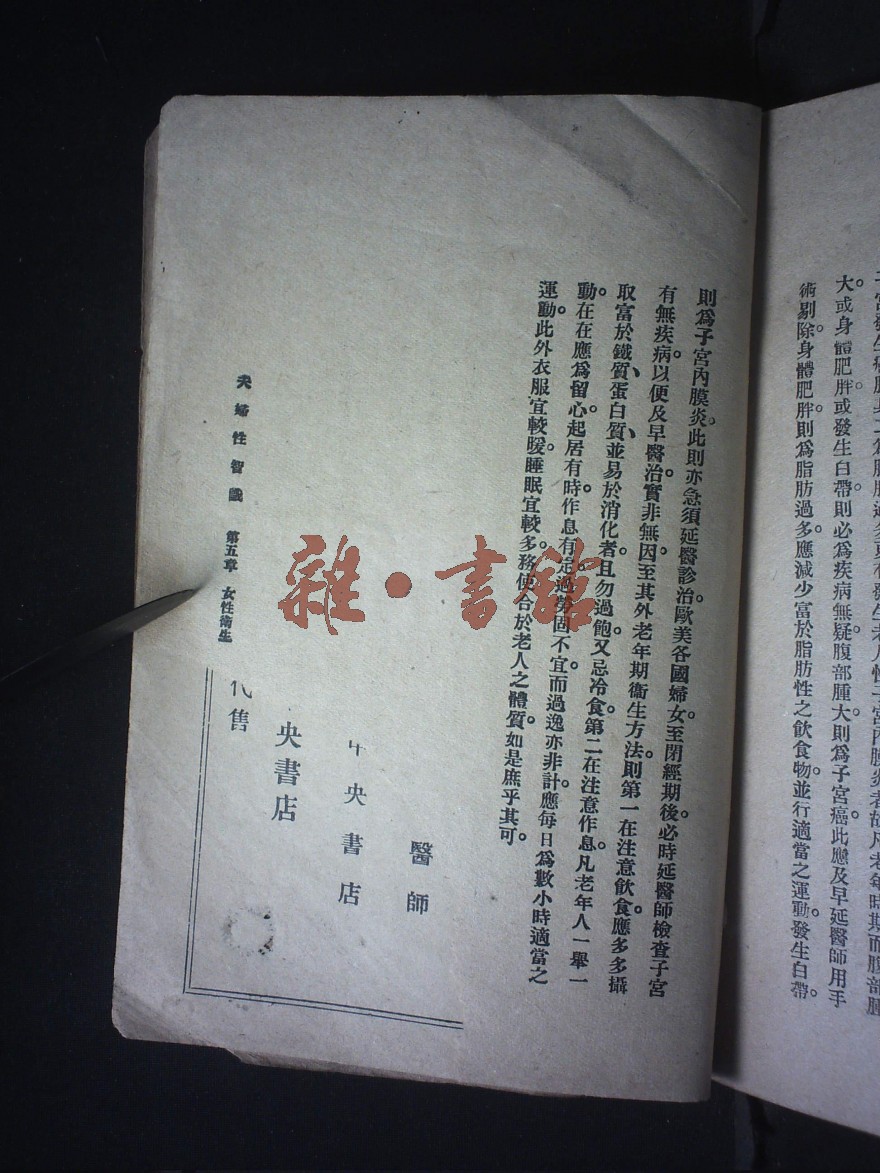 大。或身體肥胖。或發生白帶。則必爲疾病無疑。腹部腫大。則爲子宮癌。此應及早延醫師用手
術剔除。身體肥胖。則爲脂肪過多。應減少富於脂肪性之飲食物。並行適當之運動。發生白帶。
則爲子宮內膜炎。此則亦急須延醫診治。歐美各國婦女。至閉經期後。必時延醫師檢查子宮
有無疾病。以便及早醫治。實非無因。至其外老年期衞生方法。則第一在注意飲食。應多多攝
取富於鐵質、蛋白質、並易於消化者。且勿過飽。又忌冷食。第二在注意作息。凡老年人一舉一
動。在在應爲留心。起居有時。作息有定。過勞固不宜。而過逸亦非計。應每日爲數小時適當之
運動。此外衣服宜較暖。睡眠宜較多。務使合於老人之體質。如是庶乎其可。
夫婦性智識 第五章 女性衞生
醫師
中央書店
央書店
代售
雜·書館